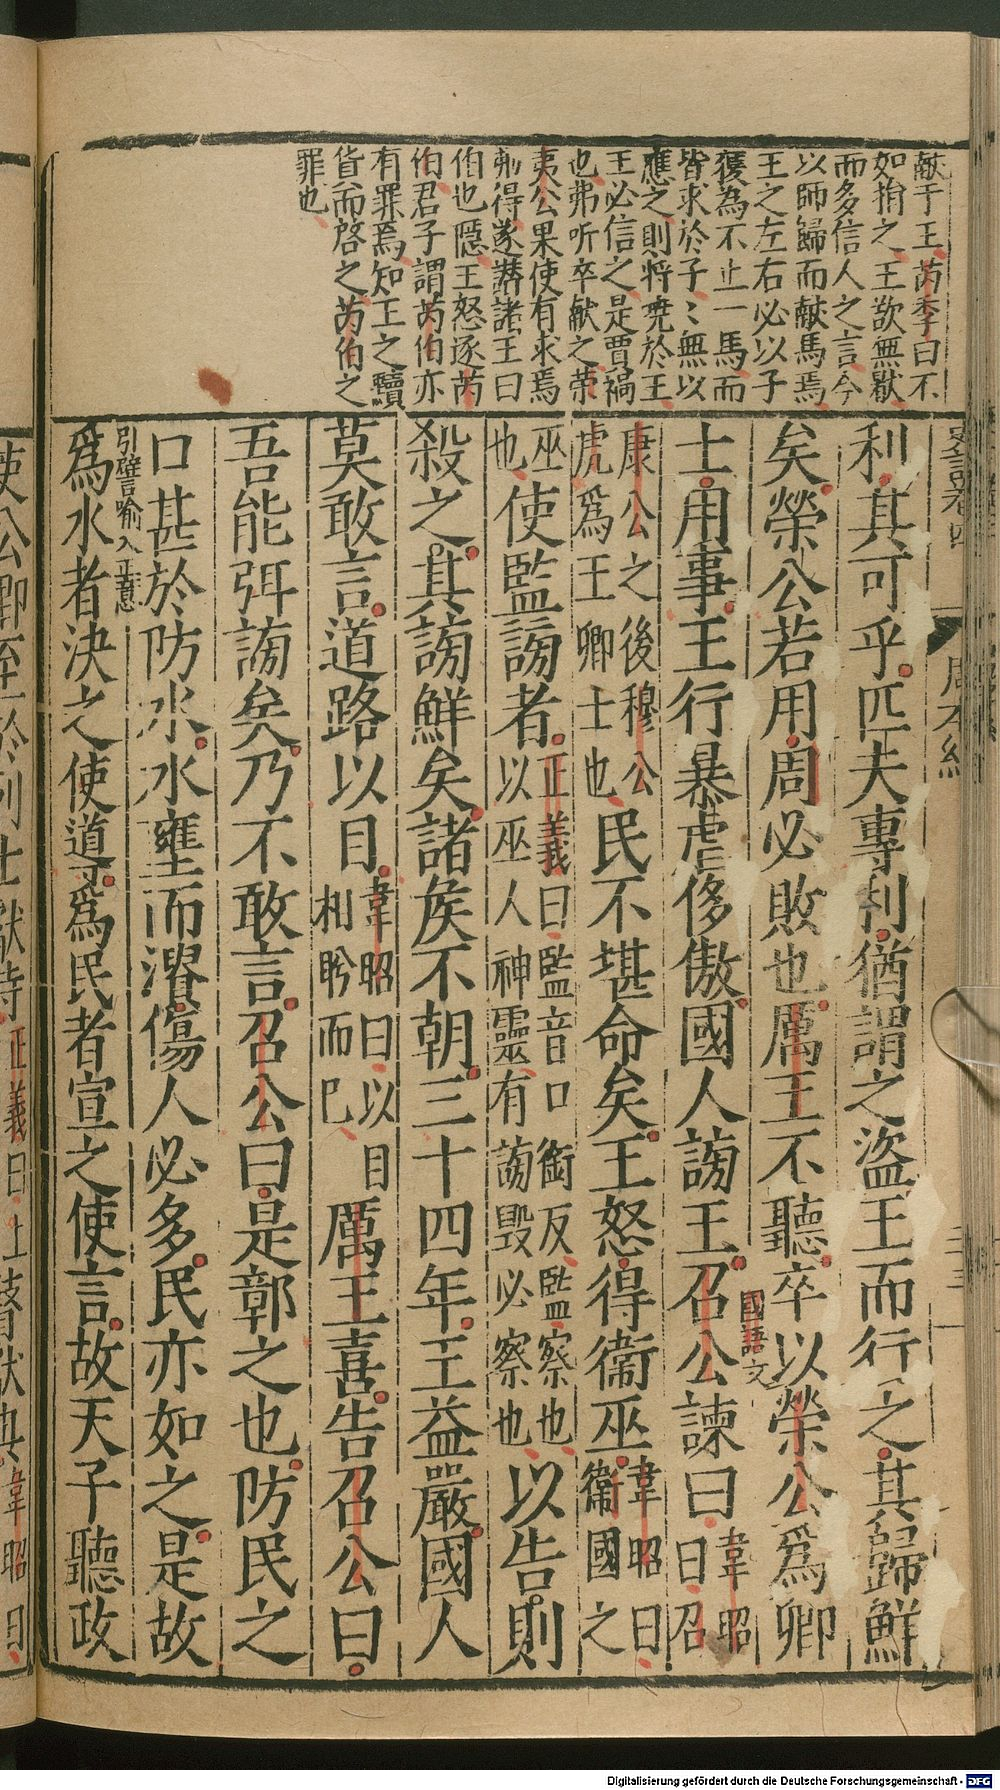 献于王芮季曰不
如捐之王欲無厭
而多信人之言今
以師歸而献馬焉
王之左右必以子
復為不止一馬而
皆求於子〻無以
應之則将堯於王
王必信之是賈禍
也弗听卒献之荣
夷公果使有求焉
弗得遂譛諸王曰
伯也隠王怒逐芮
伯君子謂芮伯亦
有罪焉知王之黷
貨而啓之芮伯之
罪也
周本紀
利其可乎匹夫專利猶謂之盜王而行之其歸鮮
矣榮公若用周必敗也厲王不聽卒以榮公爲卿
國語文
士用事王行暴虐侈傲國人謗王召公諫曰韋昭曰召
康公之後穆公虎爲王卿士也民不堪命矣王怒得衞巫韋昭曰衞國之
巫也使監謗者正義曰監音口銜反監察也以巫人神靈有謗毁必察也以告則
殺之其謗鮮矣諸矦不朝三十四年王益嚴國人
莫敢言道路以目韋昭曰以目相眄而已厲王喜告召公曰
吾能弭謗矣乃不敢言召公曰是鄣之也防民之
口甚於防水水壅而潰傷人必多民亦如之是故
引譬喻入正意
爲水者決之使導爲民者宣之使言故天子聽政
使公卿至於列士献诗正義曰上
Digitalisierung gefördert durch die Deutsche Forschungsgemeinschaft - DFG